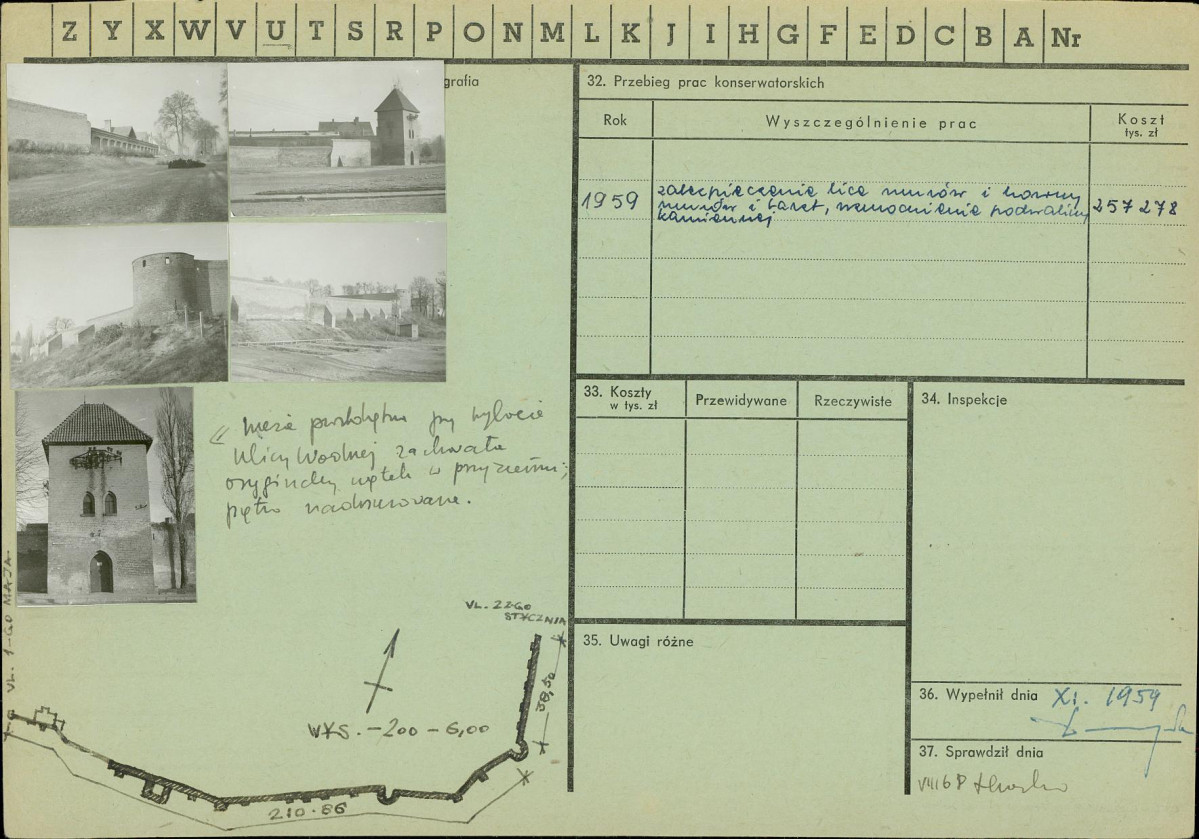 Z Y X W V U T S R P O N M L K J I H G F E D C B A Nr
grafia
« 
Ulicy Wodnej zachowała
w przyziemiu;
piętro nadmurowane.
UL. 1-GO MAJA.
UL. 22-GO
STYCZNIA
38,50
WYS. – 200 – 6,00
210.86
32. Przebieg prac konserwatorskich
Rok
Wyszczególnienie prac
Koszt
tys. zł
1959
zabezpieczenie lica murów i korony
murów i baszt, wzmocnienie podwaliny
kamiennej
257 278
33. Koszty
w tys. zł
Przewidywane
Rzeczywiste
34. Inspekcje
35. Uwagi różne
36. Wypełnił dnia XI. 1959
37. Sprawdził dnia
VIII 68